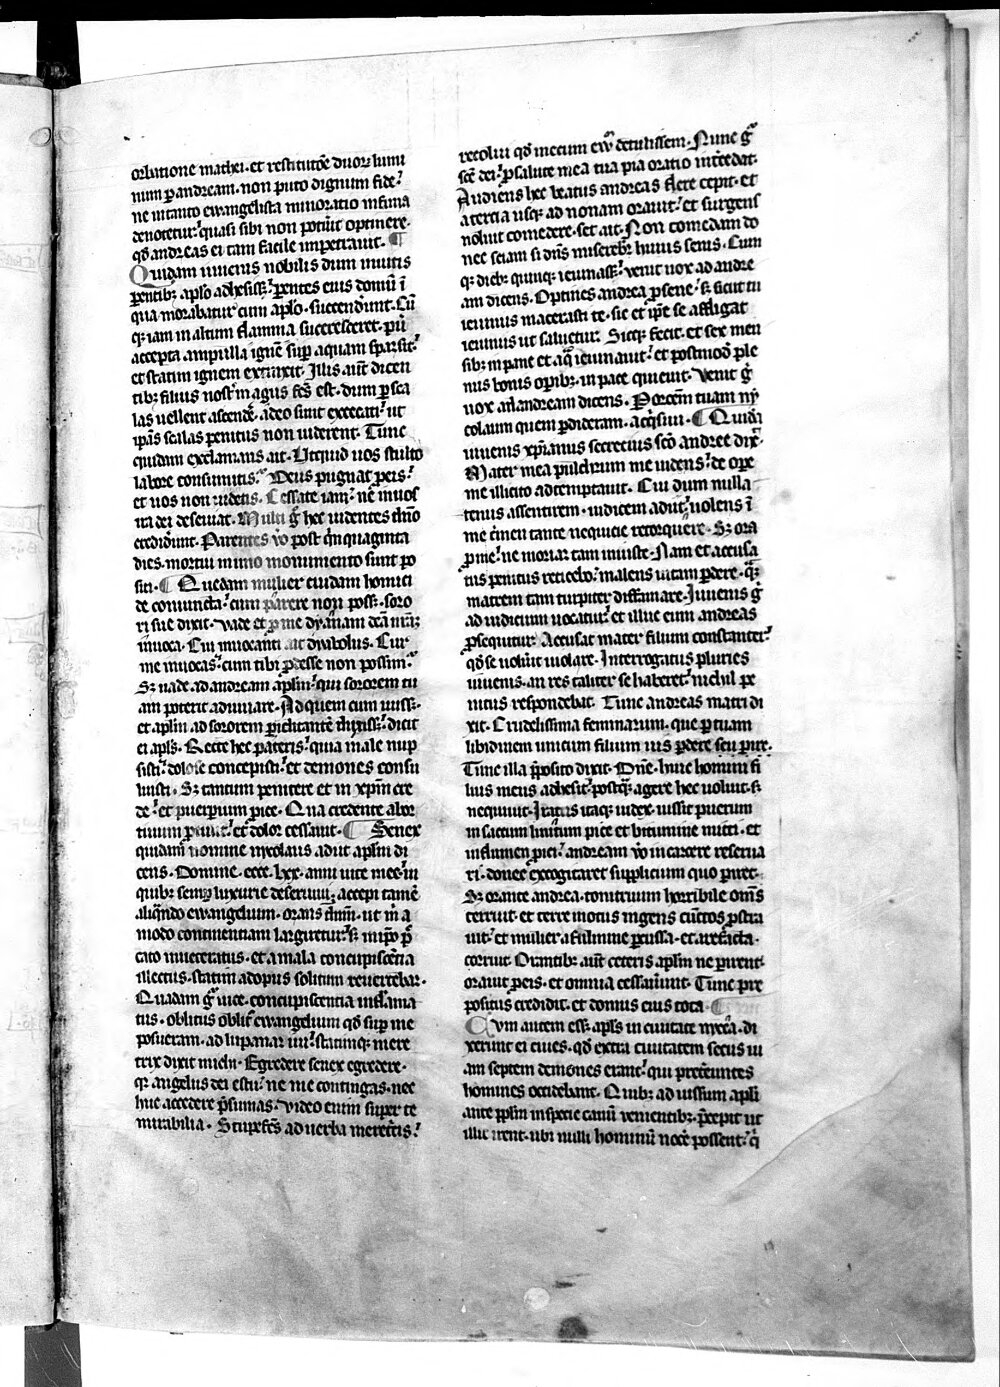 orbatione mathei. et restitutōe duoꝝ lumi
num ꝑ andream. non puto dignum fide.
ne in tanto ewangelista minoratio infima
denotetur. quasi sibi non potuit optinere.
qđ andreas ei tam facile impetrauit. ¶
Quidam iuuenis nobilis dum inuitis
ꝑentibꝫ aplo adhesissꝫ. ꝑentes eius domū ī
qua morabatur cum aplo. succenderunt. Cū
qꝫ iam in altum flamma succresceret. pu͛
accepta ampulla ignē suꝑ aquam sparsit.
et statim ignem extinxit. Illis aut̄ dicen
tibꝫ filius nost͛ magus fc̄s est. dum ꝑ sca
las uellent ascende͛. adeo sunt excecati. ut
ipās scalas penitus non uiderent. Tunc
quidam exclamans ait. Utquid uos stulto
labore consumitis. Deus pugnat ꝓ eis.
et uos non uidetis. Cessate iam. nē in uos
ira dei deseuiat. Multi g͛ hec uidentes dn̄o
crediderunt. Parentes u̾o post qͥnquaginta
dies. mortui in uno monumento sunt po
siti. ¶ Quedam mulier cuidam homici
de coniuncta. cum parere non possꝫ. soro
ri sue dixit. Vade et ꝓ me dyanam deā nr̄aꝫ
inuoca. Cui inuocanti ait dyabolus. Cur
me inuocas. cum tibi ꝓdesse non possim.
Sꝫ uade ad andream aplm̄. qui sororem tu
am poterit adiuuare. Ad quem cum iuissꝫ.
et aplm̄ ad sororem ꝑiclitantē duxissꝫ. dicit
ei apls. Recte hec pateris. quia male nup
sisti. dolose concepisti. et demones consu
luisti. Sꝫ tantum penitere et in xp̄m cre
de. et puerpium ꝓice. Qua credente abor
tiuum et dolor cessauit. ¶ Senex
quidam nomine nycolaus adiit aplm̄ di
cens. Domine. ecce. lxx. anni uite mee. in
quibꝫ semꝑ luxurie deseruiui. accepi tamē
aliqn̄do ewangelium. orans dn̄m. ut m̄ a
modo continentiam largiretur. sꝫ in ip̄o pc̄
cato inueteratus. et a mala concupiscētia
illectus. statim ad opus solitum reuertebar.
Quadam g͛ uice. concupiscentia inflama
tus. oblitus ewangelium qđ suꝑ me
posueram. ad lupanar iui. statimqꝫ mere
trix dixit michi. Egredere senex egredere.
qꝛ angelus dei es tu. ne me contingas. nec
huc accedere p̄sumas. Video enim super te
mirabilia. Stupefc̄s ad uerba meret͛cis.
recolui qđ mecum ew̄ detulissem. Nunc g͛
sc̄e dei. ꝓ salute mea tua pia oratio int͛cedat.
Audiens hec beatus andreas flere cepit. et
a tercia usqꝫ ad nonam orauit. et surgens
noluit comedere. set ait. Non comedam do
nec sciam si dn̄s misereb͛ huius senis. Cum
qꝫ diebꝫ quinqꝫ ieiunassꝫ. venit uox ad andre
am dicens. Optines andrea ꝓ sene. sꝫ sicut tu
ieiuniis macerasti te. sic et ip̄e se affligat
ieiuniis ut saluetur. Sicqꝫ fecit. et sex men
sibꝫ in pane et aq̄ ieiunauit. et postmod̄ ple
nus bonis opibꝫ. in pace quieuit. Venit g͛
uox ad andream dicens. Per oēm tuam ny
colaum quem ꝑdideram. acq̄siui. ¶ Quidā
iuuenis xp̄ianus secretius sc̄o andree dix̄.
Mater mea pulchrum me uidens. de ope
me illicito adtemptauit. Cui dum nulla
tenus assentirem. iudicem adiit. uolens ī
me c͛men tante nequicie retorquere. Sꝫ ora
ꝓ me. ne moriar tam iniuste. Nam et accusa
tus penitus reticebo. malens uitam ꝑdere. qͣꝫ
matrem tam turpiter diffamare. Iuuenis g͛
ad iudicium uocatur. et illuc eum andreas
ꝓsequitur. Accusat mater filium constanter.
qđ se uoluit uiolare. Interrogatus pluries
iuuenis. an res taliter se haberet. nichil pe
nitus respondebat. Tunc andreas matri di
xit. Crudelissima feminarum. que ꝑ tuam
libidinem unicum filium uis ꝑdere seu ꝑire.
Tunc illa p̄posito dixit. Dn̄e. huic homini fi
lius meus adhesit. postqͣꝫ agere hec uoluit. sꝫ
nequiuit. Iratus itaqꝫ iudex. iussit puerum
in saccum linitum pice et bitumine mitti. et
in flumen ꝓici. andream u̾o in carcere reserua
ri. donec excogitaret supplicium quo ꝑiret.
Sꝫ orante andrea. tonitruum horribile om̄s
terruit. et terre motus ingens cūctos ꝓstra
uit. et mulier a fulmine ꝑcussa. et arefacta.
corruit. Orantibꝫ aut̄ ceteris aplm̄ ne ꝑirent.
orauit ꝓ eis. et omnia cessauerunt. Tunc pre
positus credidit. et domus eius tota. ¶
Cvm autem essꝫ apls in ciuitate nycea. di
xerunt ei ciues. qđ extra ciuitatem secus ui
am septem demones erant. qui pret͛euntes
homines occidebant. Quibꝫ ad iussum apl̄i
ante ppl̄m in specie canū uenientibꝫ. p̄cepit ut
illuc irent. ubi nulli hominū noce͛ possent. qͥ